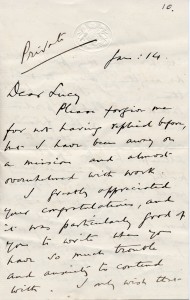 10.
Private
Jan: 14
Dear Lucy
Please forgive me
for not having replied before,
but I have been away on
a mission and almost
overwhelmed with work.
I greatly appreciated
your congratulations, and
it was particularly good of
you to write when you
have so much trouble
and anxiety to contend
with. I only wish